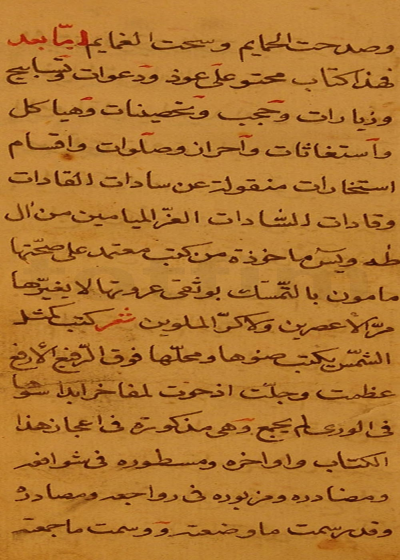 وصدحت الحمايم وسحت الغمايم اما بعد
فهذا كتاب محتو على عوذ ودعوات وتسابيح
وزيارات وحجب وتحصينات وهياكل
واستغاثات واحراز وصلوات واقسام
استخارات منقولة عن سادات القادات
وقادات السادات الغر الميامين من ال
طه ويس ماخوذة من كتب معتمد على صحتها
مامون بالتمسك بوثقى عروتها لا يغيرها
مر الاعصرين ولا كر الملوين شعر كتب كمثل
الشمس يكتب ضوها ومحلها فوق الرفيع الارفع
عظمت وجلت اذ حوت لمفاخر ابدا سوها
في الورى لم يجمع وهي مذكورة في اعجاز هذا
الكتاب واواخره ومسطوره في
ومصادره ومزبوره في
وقد رسمت ما وضعته ووسمت ما جمعته